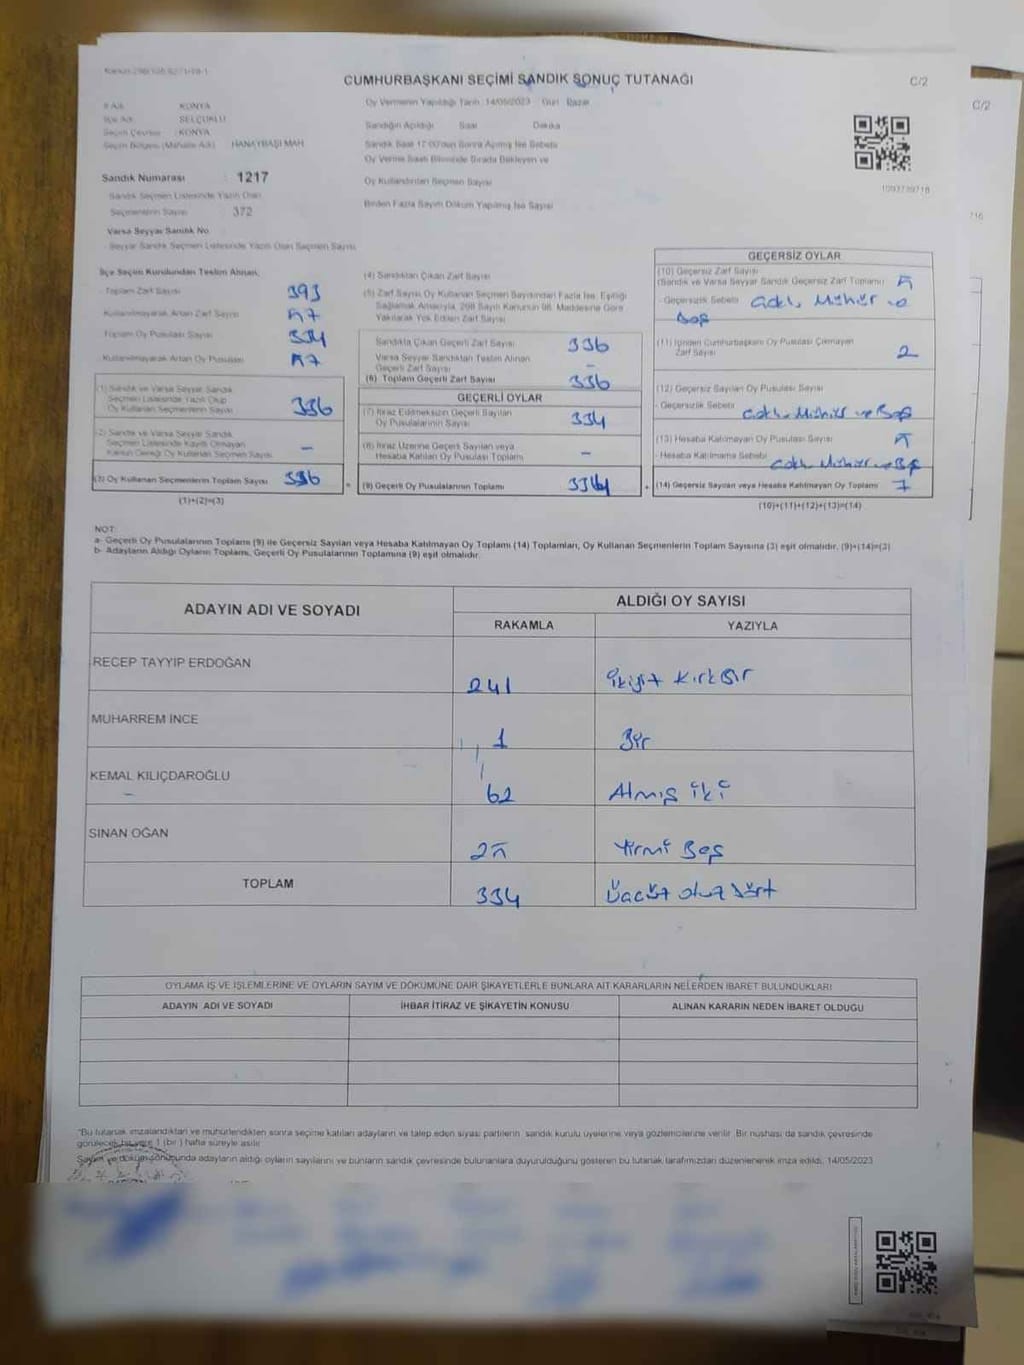 CUMHURBAŞKANI SEÇİMİ SANDIK SONUÇ TUTANAĞI
C/2
C/2
Oy Vermenin Yapıldığı Tarih: 14/05/2023 Gün: Pazar
İl Adı : KONYA
İlçe Adı : SELÇUKLU
Seçim Çevresi : KONYA
Seçim Bölgesi (Mahalle Adı) : HANAYBAŞI MAH.
Sandığın Açıldığı Saat Dakika
Sandık Saat 17:00'den Sonra Açılmış İse Sebebi
Oy Verme Saati Bitiminde Sırada Bekleyen ve
Oy Kullandırılan Seçmen Sayısı
Birden Fazla Sayım Döküm Yapılmış İse Sayısı
Sandık Numarası : 1217
Sandık Seçmen Listesinde Yazılı Olan
Seçmenlerin Sayısı : 372
Varsa Seyyar Sandık No
- Seyyar Sandık Seçmen Listesinde Yazılı Olan Seçmen Sayısı
İlçe Seçim Kurulundan Teslim Alınan;
- Toplam Zarf Sayısı 393
- Kullanılmayarak Artan Zarf Sayısı 57
Toplam Oy Pusulası Sayısı
- Kullanılmayarak Artan Oy Pusulası 57
(1) Sandık ve Varsa Seyyar Sandık
Seçmen Listesinde Yazılı Olup
Oy Kullanan Seçmenlerin Sayısı 336
(2) Sandık ve Varsa Seyyar Sandık
Seçmen Listesinde Kayıtlı Olmayan
Kanun Gereği Oy Kullanan Seçmen Sayısı -
(3) Oy Kullanan Seçmenlerin Toplam Sayısı 336
(1)+(2)=(3)
(4) Sandıktan Çıkan Zarf Sayısı
(5) Zarf Sayısı Oy Kullanan Seçmen Sayısından Fazla İse, Eşitliği
Sağlamak Amacıyla, 298 Sayılı Kanunun 98. Maddesine Göre
Yakılarak Yok Edilen Zarf Sayısı
Sandıkta Çıkan Geçerli Zarf Sayısı 336
Varsa Seyyar Sandıktan Teslim Alınan
Geçerli Zarf Sayısı -
(6) Toplam Geçerli Zarf Sayısı 336
GEÇERLİ OYLAR
(7) İtiraz Edilmeksizin Geçerli Sayılan
Oy Pusulalarının Sayısı 334
(8) İtiraz Üzerine Geçerli Sayılan veya
Hesaba Katılan Oy Pusulası Toplamı -
(9) Geçerli Oy Pusulalarının Toplamı
GEÇERSİZ OYLAR
(10) Geçersiz Zarf Sayısı
(Sandık ve Varsa Seyyar Sandık Geçersiz Zarf Toplamı) 5
- Geçersizlik Sebebi Mühür
Boş
(11) İçinden Cumhurbaşkanı Oy Pusulası Çıkmayan
Zarf Sayısı 2
(12) Geçersiz Sayılan Oy Pusulası Sayısı
- Geçersizlik Sebebi Mühür ve Boş
(13) Hesaba Katılmayan Oy Pusulası Sayısı 5
- Hesaba Katılmama Sebebi Mühür ve Boş
(14) Geçersiz Sayılan veya Hesaba Katılmayan Oy Toplamı 7
(10)+(11)+(12)+(13)=(14)
NOT:
a- Geçerli Oy Pusulalarının Toplamı (9) ile Geçersiz Sayılan veya Hesaba Katılmayan Oy Toplamı (14) Toplamları, Oy Kullanan Seçmenlerin Toplam Sayısına (3) eşit olmalıdır. (9)+(14)=(3)
b- Adayların Aldığı Oyların Toplamı, Geçerli Oy Pusulalarının Toplamına (9) eşit olmalıdır.
ADAYIN ADI VE SOYADI ALDIĞI OY SAYISI
RAKAMLA YAZIYLA
RECEP TAYYIP ERDOĞAN 241 Kırkbir
MUHARREM İNCE 1 Bir
KEMAL KILIÇDAROĞLU 62 Atmış iki
SİNAN OĞAN 25 Yirmi Beş
TOPLAM 334 otuz dört
OYLAMA İŞ VE İŞLEMLERİNE VE OYLARIN SAYIM VE DÖKÜMÜNE DAİR ŞİKAYETLERLE BUNLARA AİT KARARLARIN NELERDEN İBARET BULUNDUKLARI
ADAYIN ADI VE SOYADI İHBAR İTİRAZ VE ŞİKAYETİN KONUSU ALINAN KARARIN NEDEN İBARET OLDUĞU
"Bu tutanak imzalandıktan ve mühürlendikten sonra seçime katılan adayların ve talep eden siyasi partilerin sandık kurulu üyelerine veya gözlemcilerine verilir. Bir nüshası da sandık çevresinde
görülecek bir yere 1 (bir) hafta süreyle asılır.
Sayım ve döküm sonucunda adayların aldığı oyların sayılarını ve bunların sandık çevresinde bulunanlara duyurulduğunu gösteren bu tutanak tarafımızdan düzenlenerek imza edildi. 14/05/2023